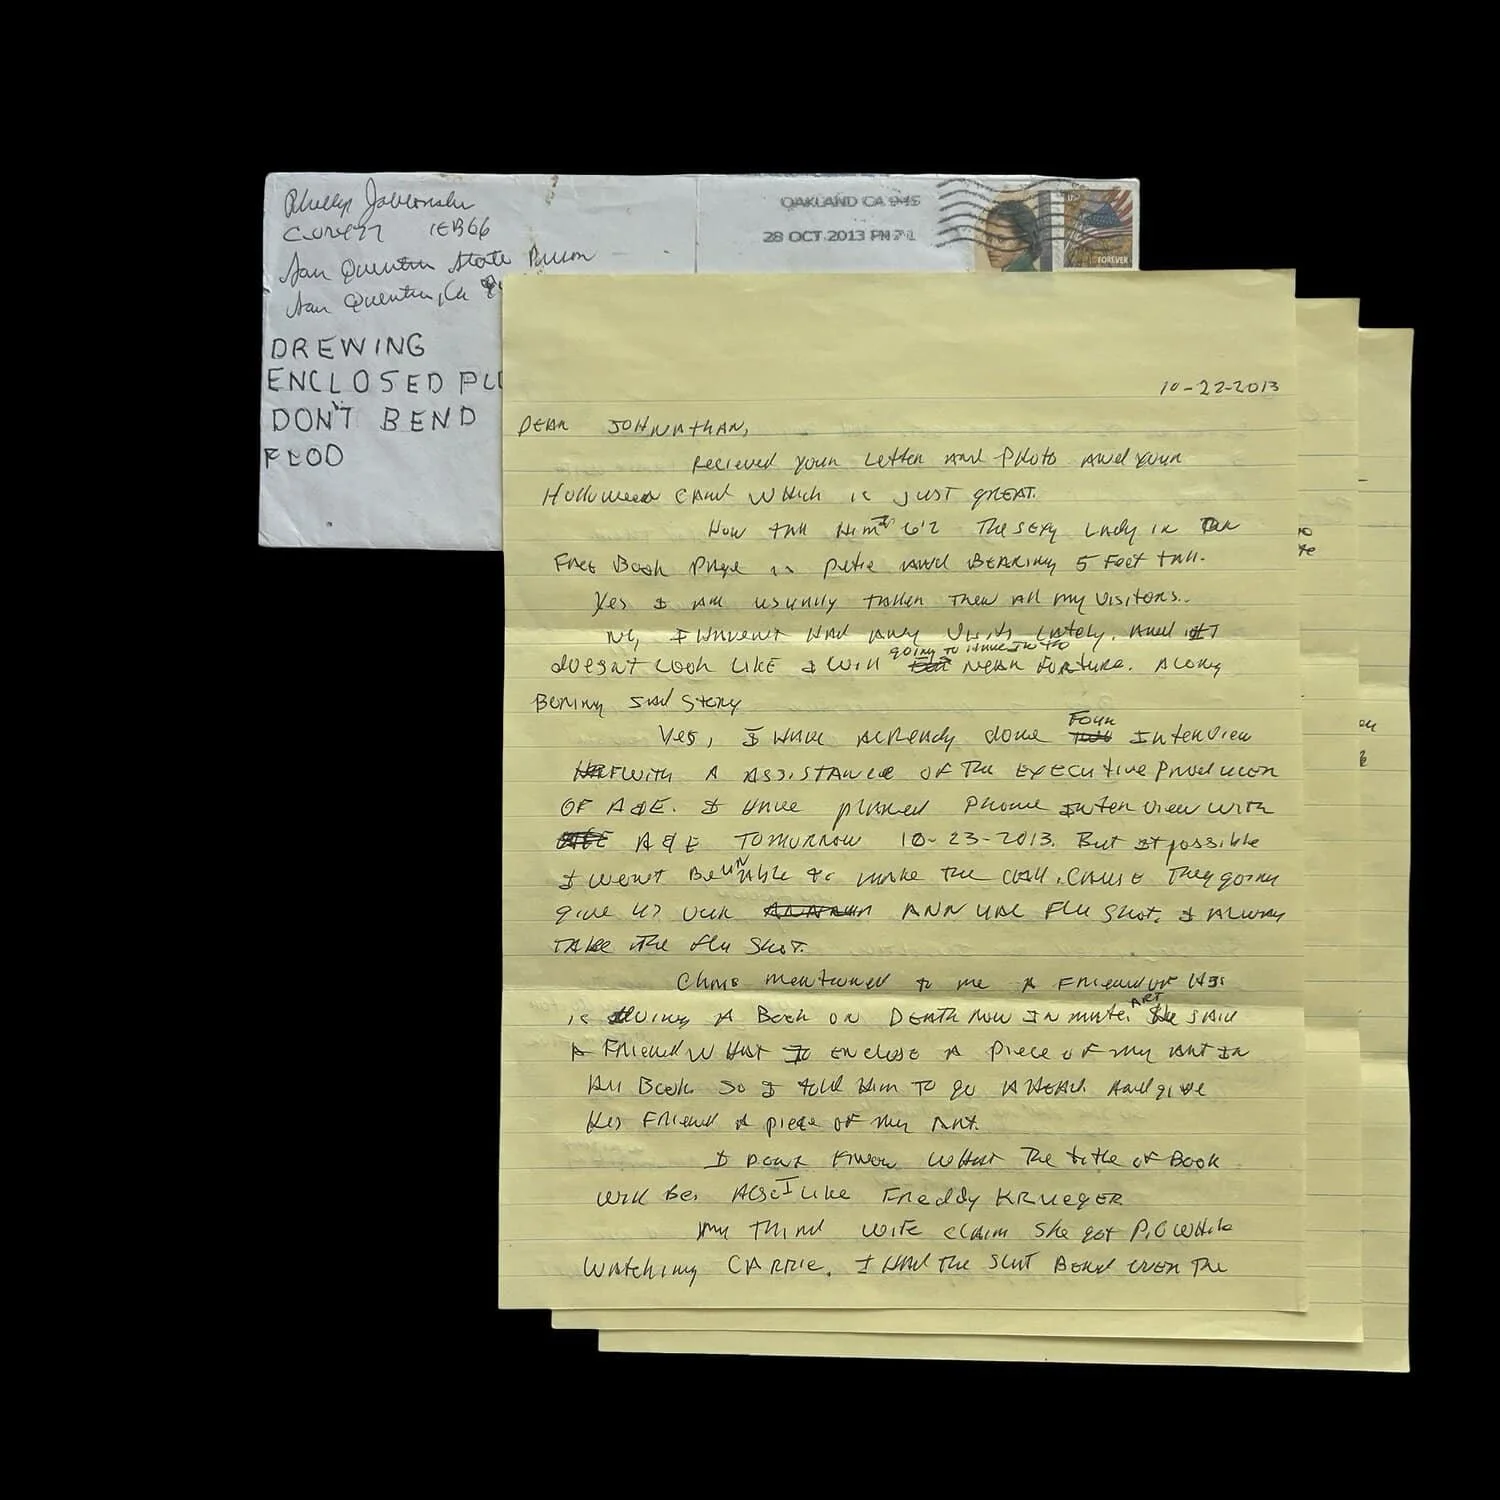 Phillip Jablonski
C02477 1EB66
San Quentin State Prison
San Quentin, Ca
DREWING
ENCLOSED PLE
DON'T BEND
FLOD
OAKLAND CA 945
28 OCT 2013 PM
FOREVER
10-22-2013
DEAR JOHNATHAN,
Recieved your Letter and Photo and your
Holloween Card Which is just great.
How tall Him I 6'2 The sexy Lady in
Face Book Page is petie and BEARing 5 Feet tall.
Yes I am usually taller then All my Visitors.
No, I Havent Had Any Visits Lately. And it
doesnt Look Like I Will going to Have In to NEAR Forture. Along
Boring Sad Story
Yes, I Have Already done Four Interview
with A Assistance OF The Executive Producer
OF A&E. I Have planed Phone Interview with
A&E Tomorrow 10-23-2013. But It possible
I wont Be unAble to make the call. Cause They going
give us our ANNUAL Flu Shot. I Alway
TAke The flu Shot.
Chris mentioned to me A Friend of His
is doing A Book on Death Row Inmate. ART He said
A Friend What To Enclose A Piece of my Art In
His Book. So I told Him To go AHead. And give
His Friend A piece of my Art.
I Dont Know What The title of Book
will Be. Also I Like Freddy KRUEGER
My Third Wife claim She got P.O While
Watching CARRIE. I Had The Slut Bend over The